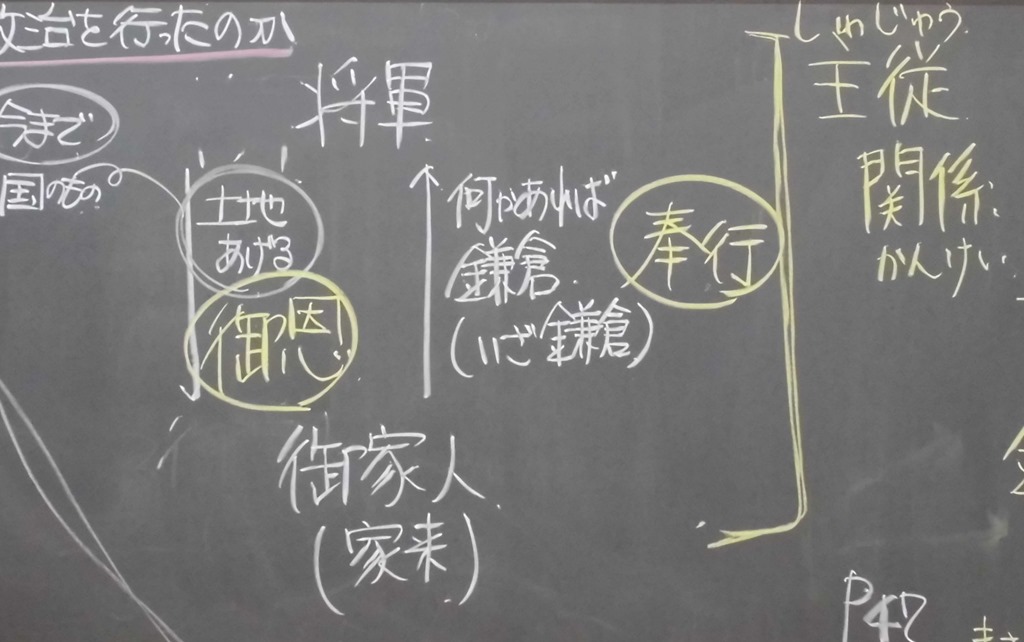 政治を行ったのか
今まで
国のもの
将軍
土地
あげる
御恩
何かあれば
鎌倉
(いざ鎌倉)
奉行
しゅじゅう
主従
関係
かんけい
御家人
(家来)
P47